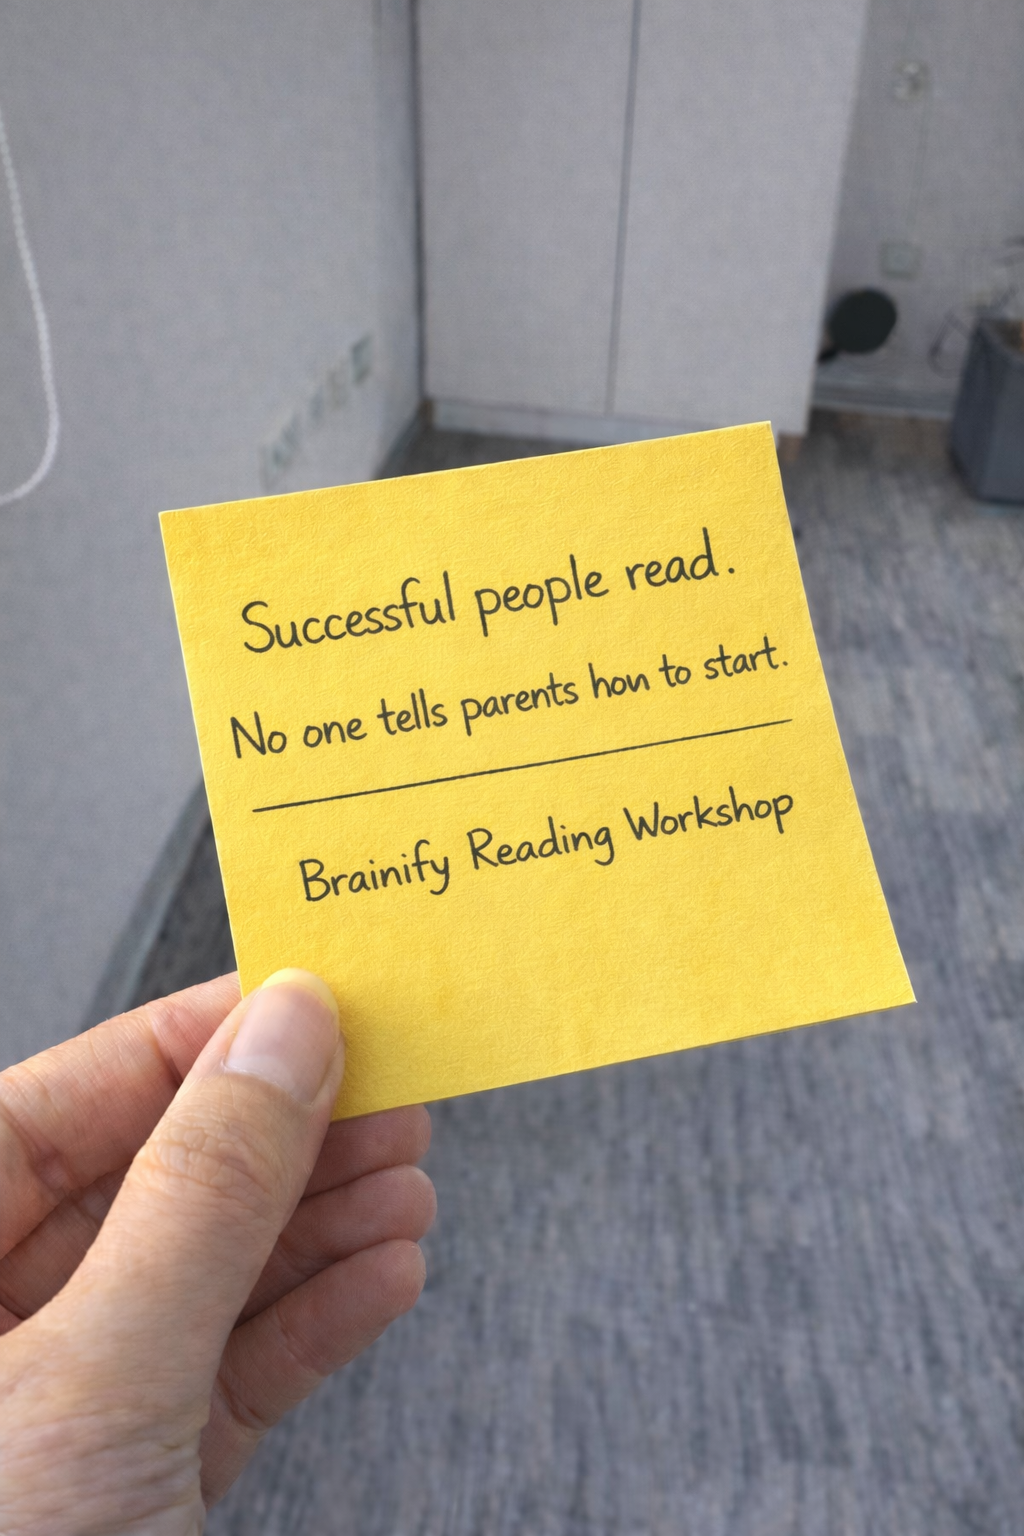 Successful people read.
No one tells parents how to start.
Brainify Reading Workshop